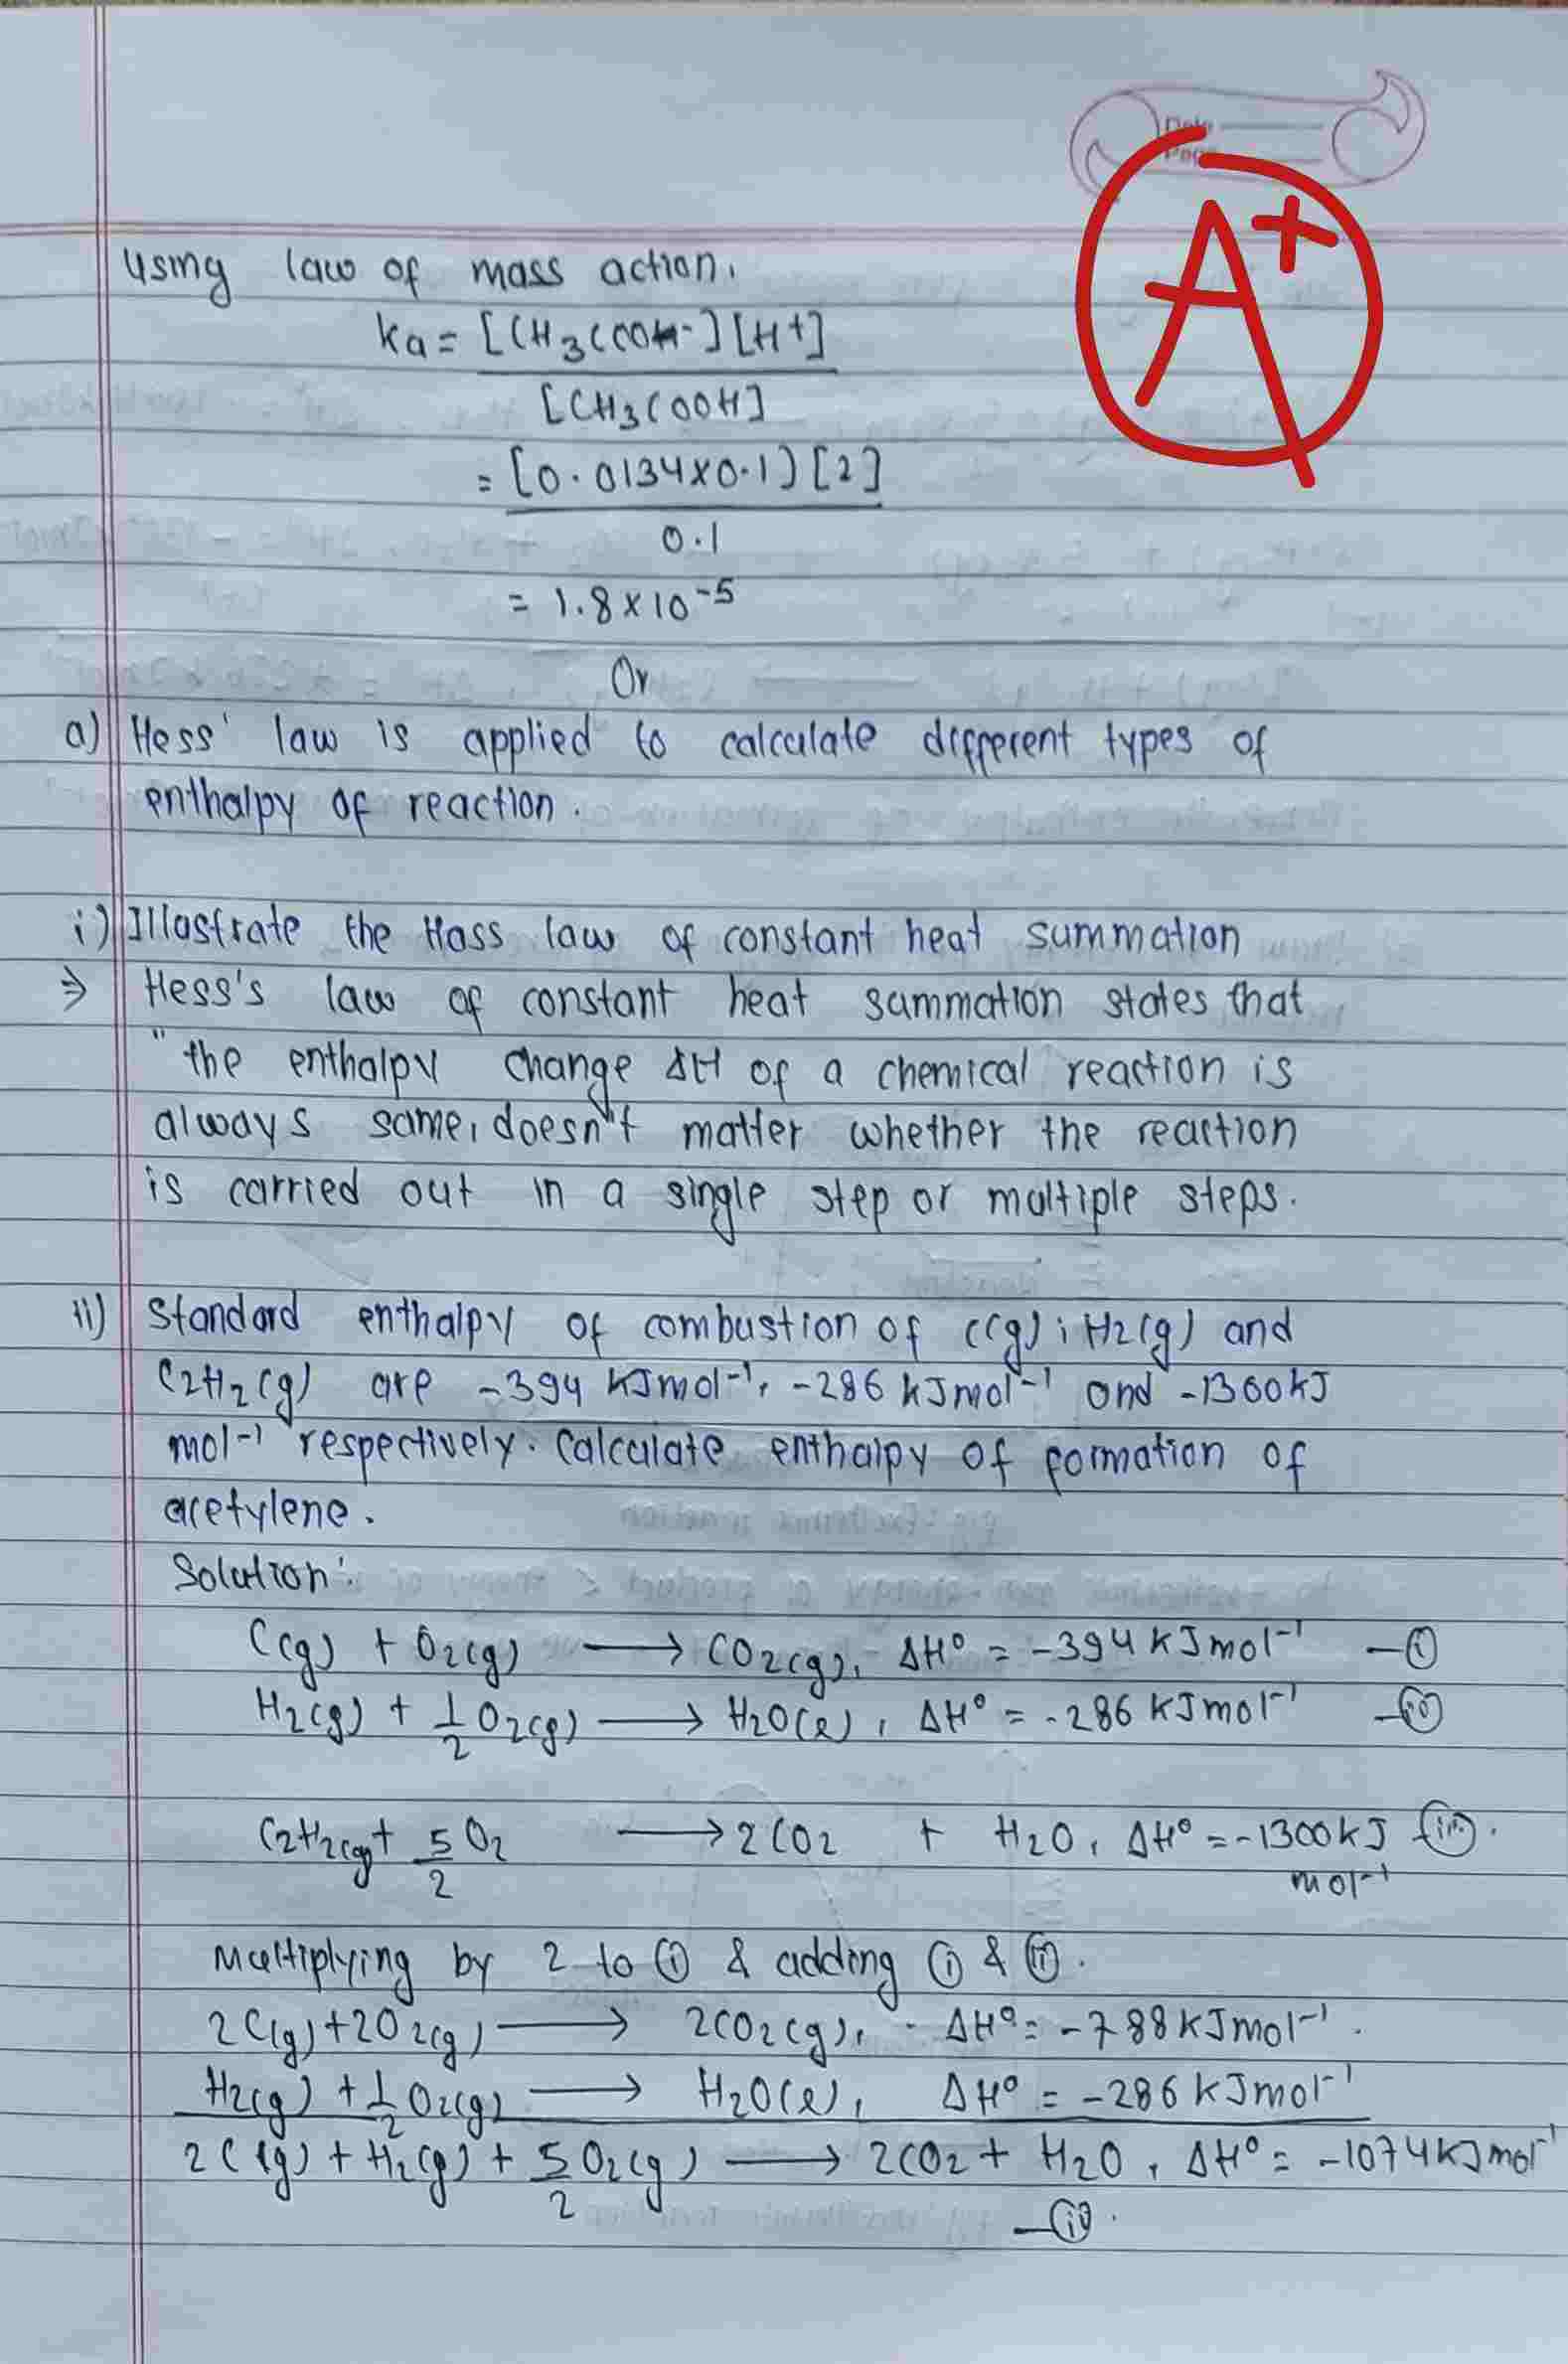 Date
Page
A+
Using law of mass action.
Ka = [CH3COO-][H+]
[CH3COOH]
= [0.0134x0.1][2]
0.1
= 1.8 x 10-5
Or
a) Hess' law is applied to calculate different types of
enthalpy of reaction.
i) Illustrate the Hass law of constant heat summation
⇒ Hess's law of constant heat summation states that
"the enthalpy change ΔH of a chemical reaction is
always same, doesn't matter whether the reaction
is carried out in a single step or multiple steps.
ii) Standard enthalpy of combustion of C(g); H2(g) and
C2H2(g) are -394 KJmol-1, -286 kJmol-1 and -1300kJ
mol-1 respectively. Calculate enthalpy of formation of
acetylene.
Solution:
C(g) + O2(g) ⟶ CO2(g), ΔH° = -394 KJmol-1 -(i)
H2(g) + 1/2 O2(g) ⟶ H2O(l), ΔH° = -286 KJmol-1 -(ii)
C2H2(g) + 5/2 O2 ⟶ 2CO2 + H2O, ΔH° = -1300kJ (iii).
mol-1
Multiplying by 2 to (i) & adding (i) & (ii).
2C(g)+2O2(g) ⟶ 2CO2(g), ΔH° = -788KJmol-1.
H2(g) + 1/2 O2(g) ⟶ H2O(l), ΔH° = -286 KJmol-1
2C(g) + H2(g) + 5/2 O2(g) ⟶ 2CO2 + H2O, ΔH° = -1074KJmol-1
-(iv).